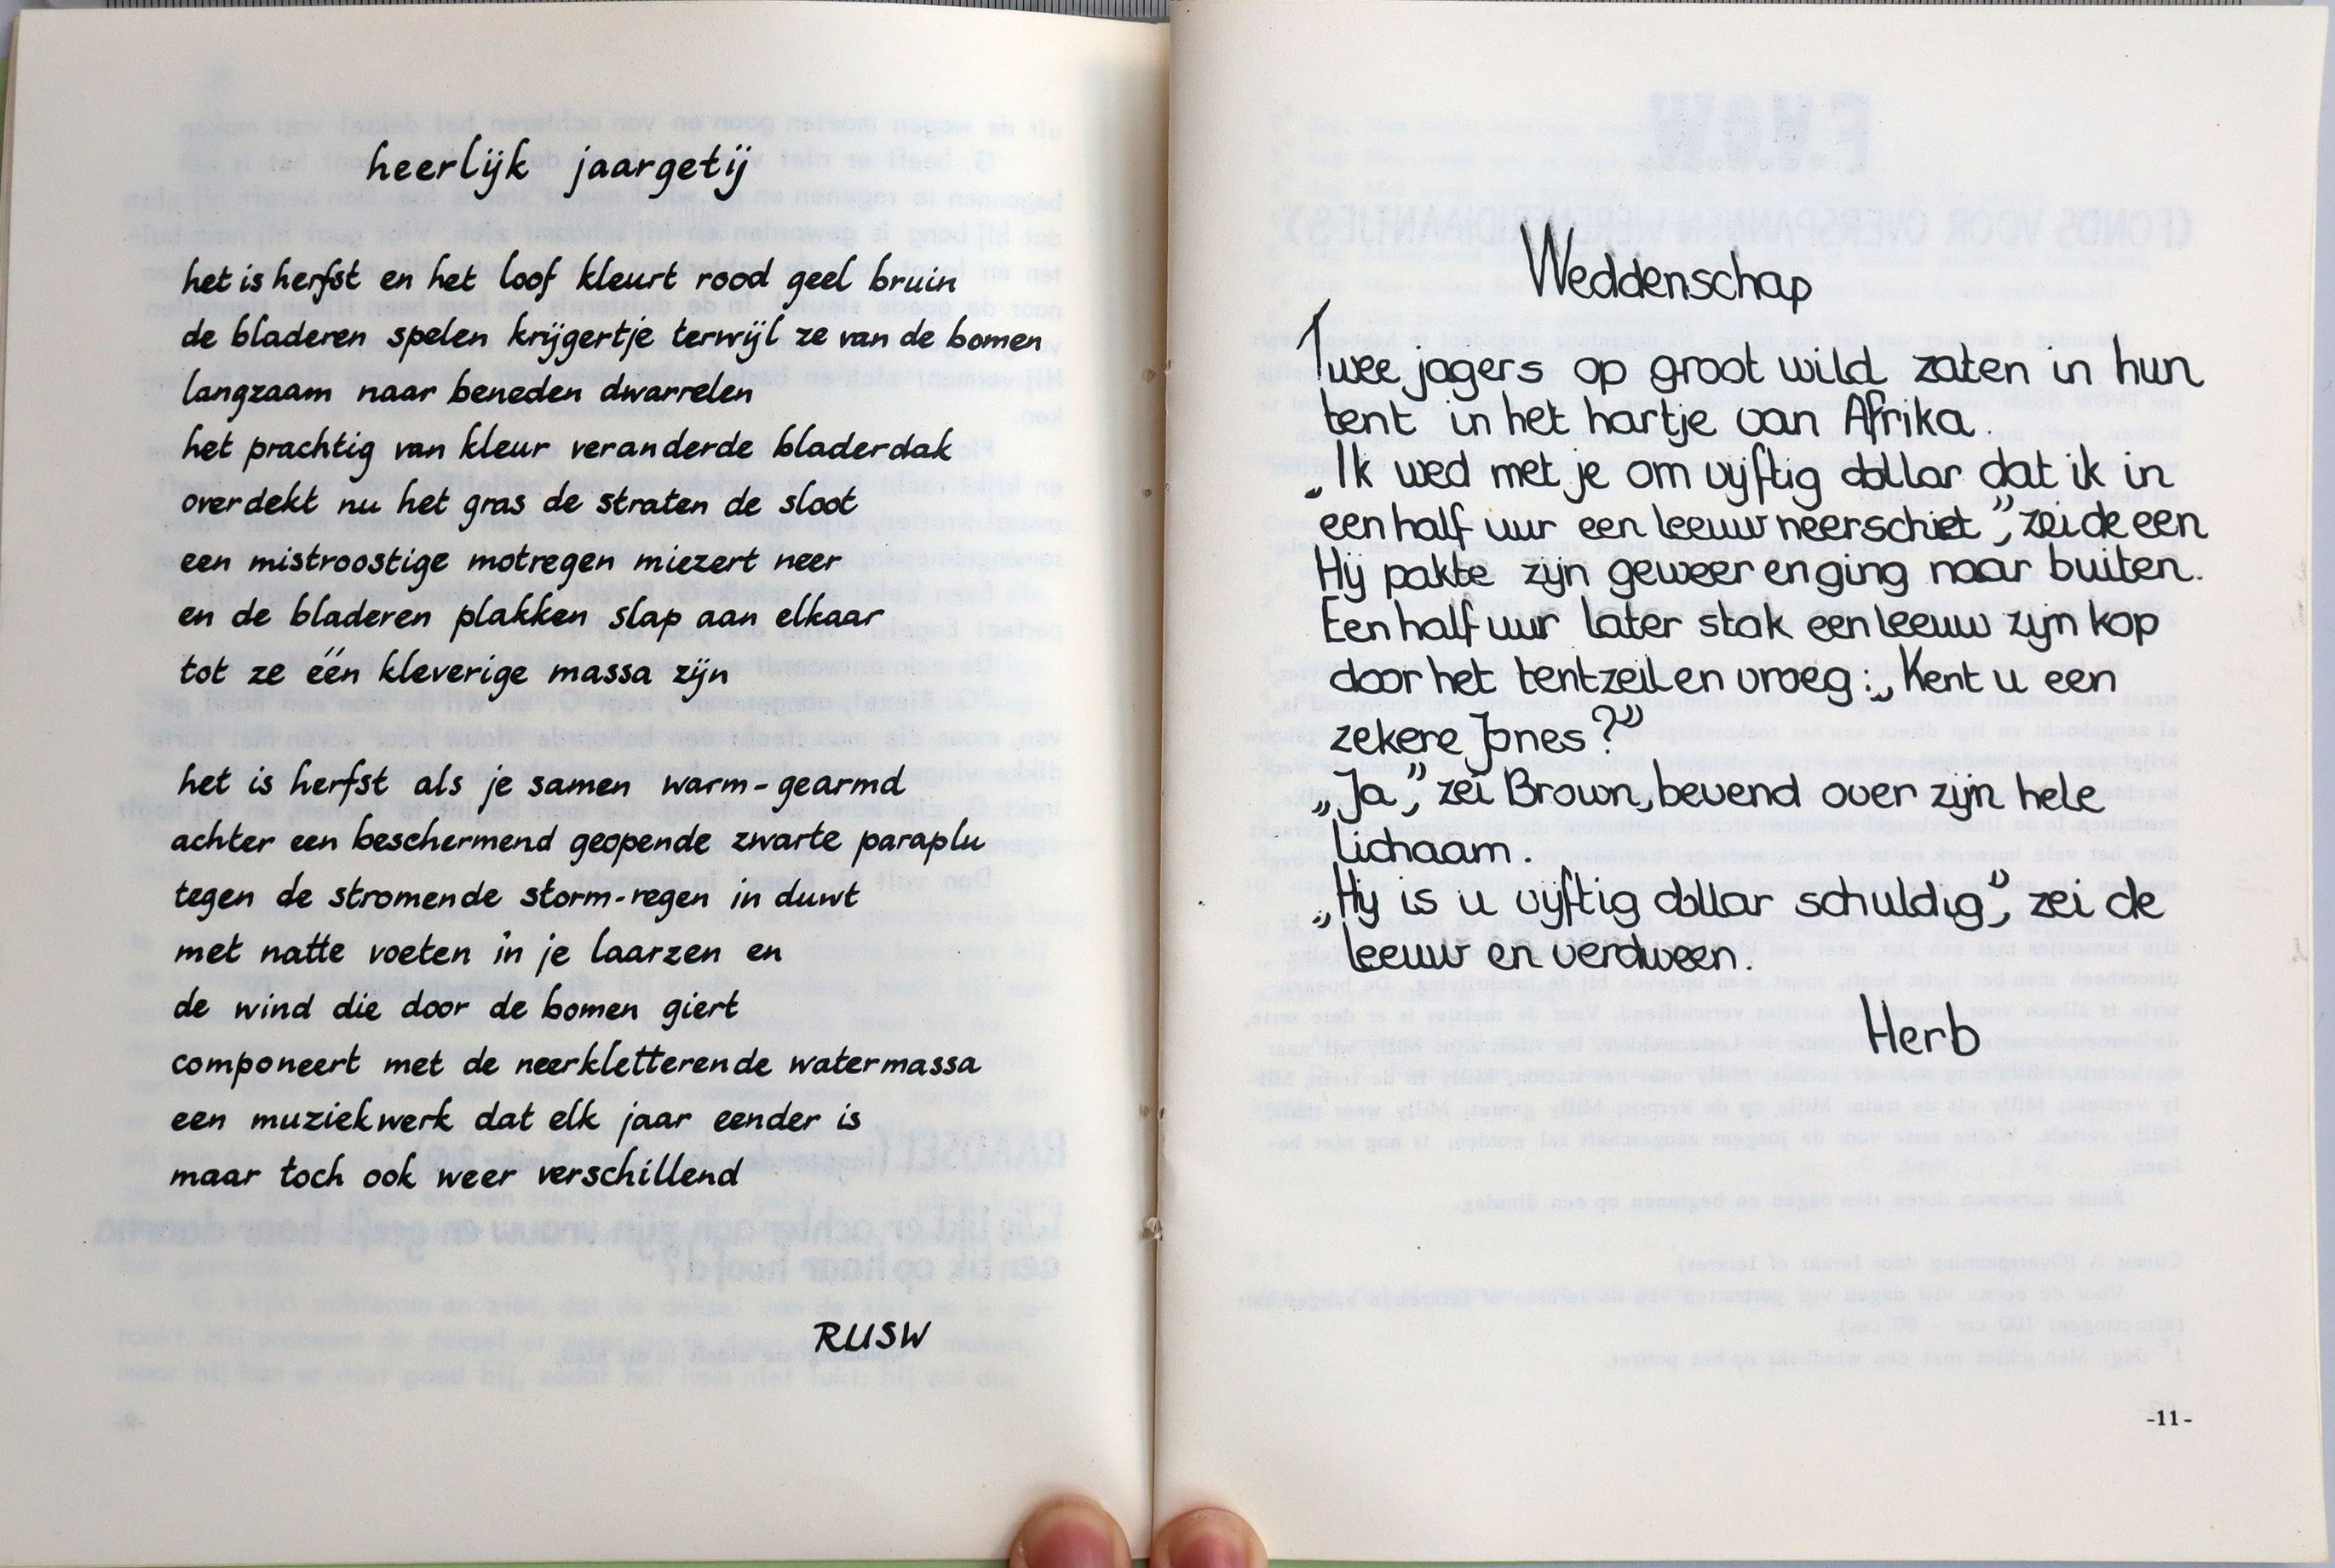 heerlijk jaargetij
het is herfst en het loof kleurt rood geel bruin
de bladeren spelen krijgertje terwijl ze van de bomen
langzaam naar beneden dwarrelen
het prachtig van kleur veranderde bladerdak
overdekt nu het gras de straten de sloot
een mistroostige motregen miezert neer
en de bladeren plakken slap aan elkaar
tot ze één kleverige massa zijn
het is herfst als je samen warm-gearmd
achter een beschermend geopende zwarte paraplu
tegen de stromende storm-regen in duwt
met natte voeten in je laarzen en
de wind die door de bomen giert
componeert met de neerkletterende watermassa
een muziekwerk dat elk jaar eender is
maar toch ook weer verschillend
RUSW
Weddenschap
Twee jagers op groot wild zaten in hun
tent in het hartje van Afrika.
„Ik wed met je om vijftig dollar dat ik in
een half uur een leeuw neerschiet”, zei de een
Hij pakte zijn geweer en ging naar buiten.
Een half uur later stak een leeuw zijn kop
door het tentzeil en vroeg: „Kent u een
zekere Jones?”
„Ja”, zei Brown, bevend over zijn hele
lichaam.
„Hij is u vijftig dollar schuldig”, zei de
leeuw en verdween.
Herb
-11-